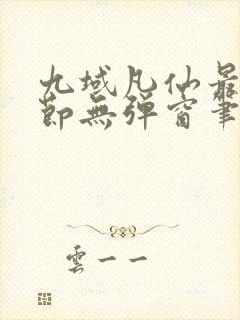 九域凡仙最
節無彈窗筆
雲一一